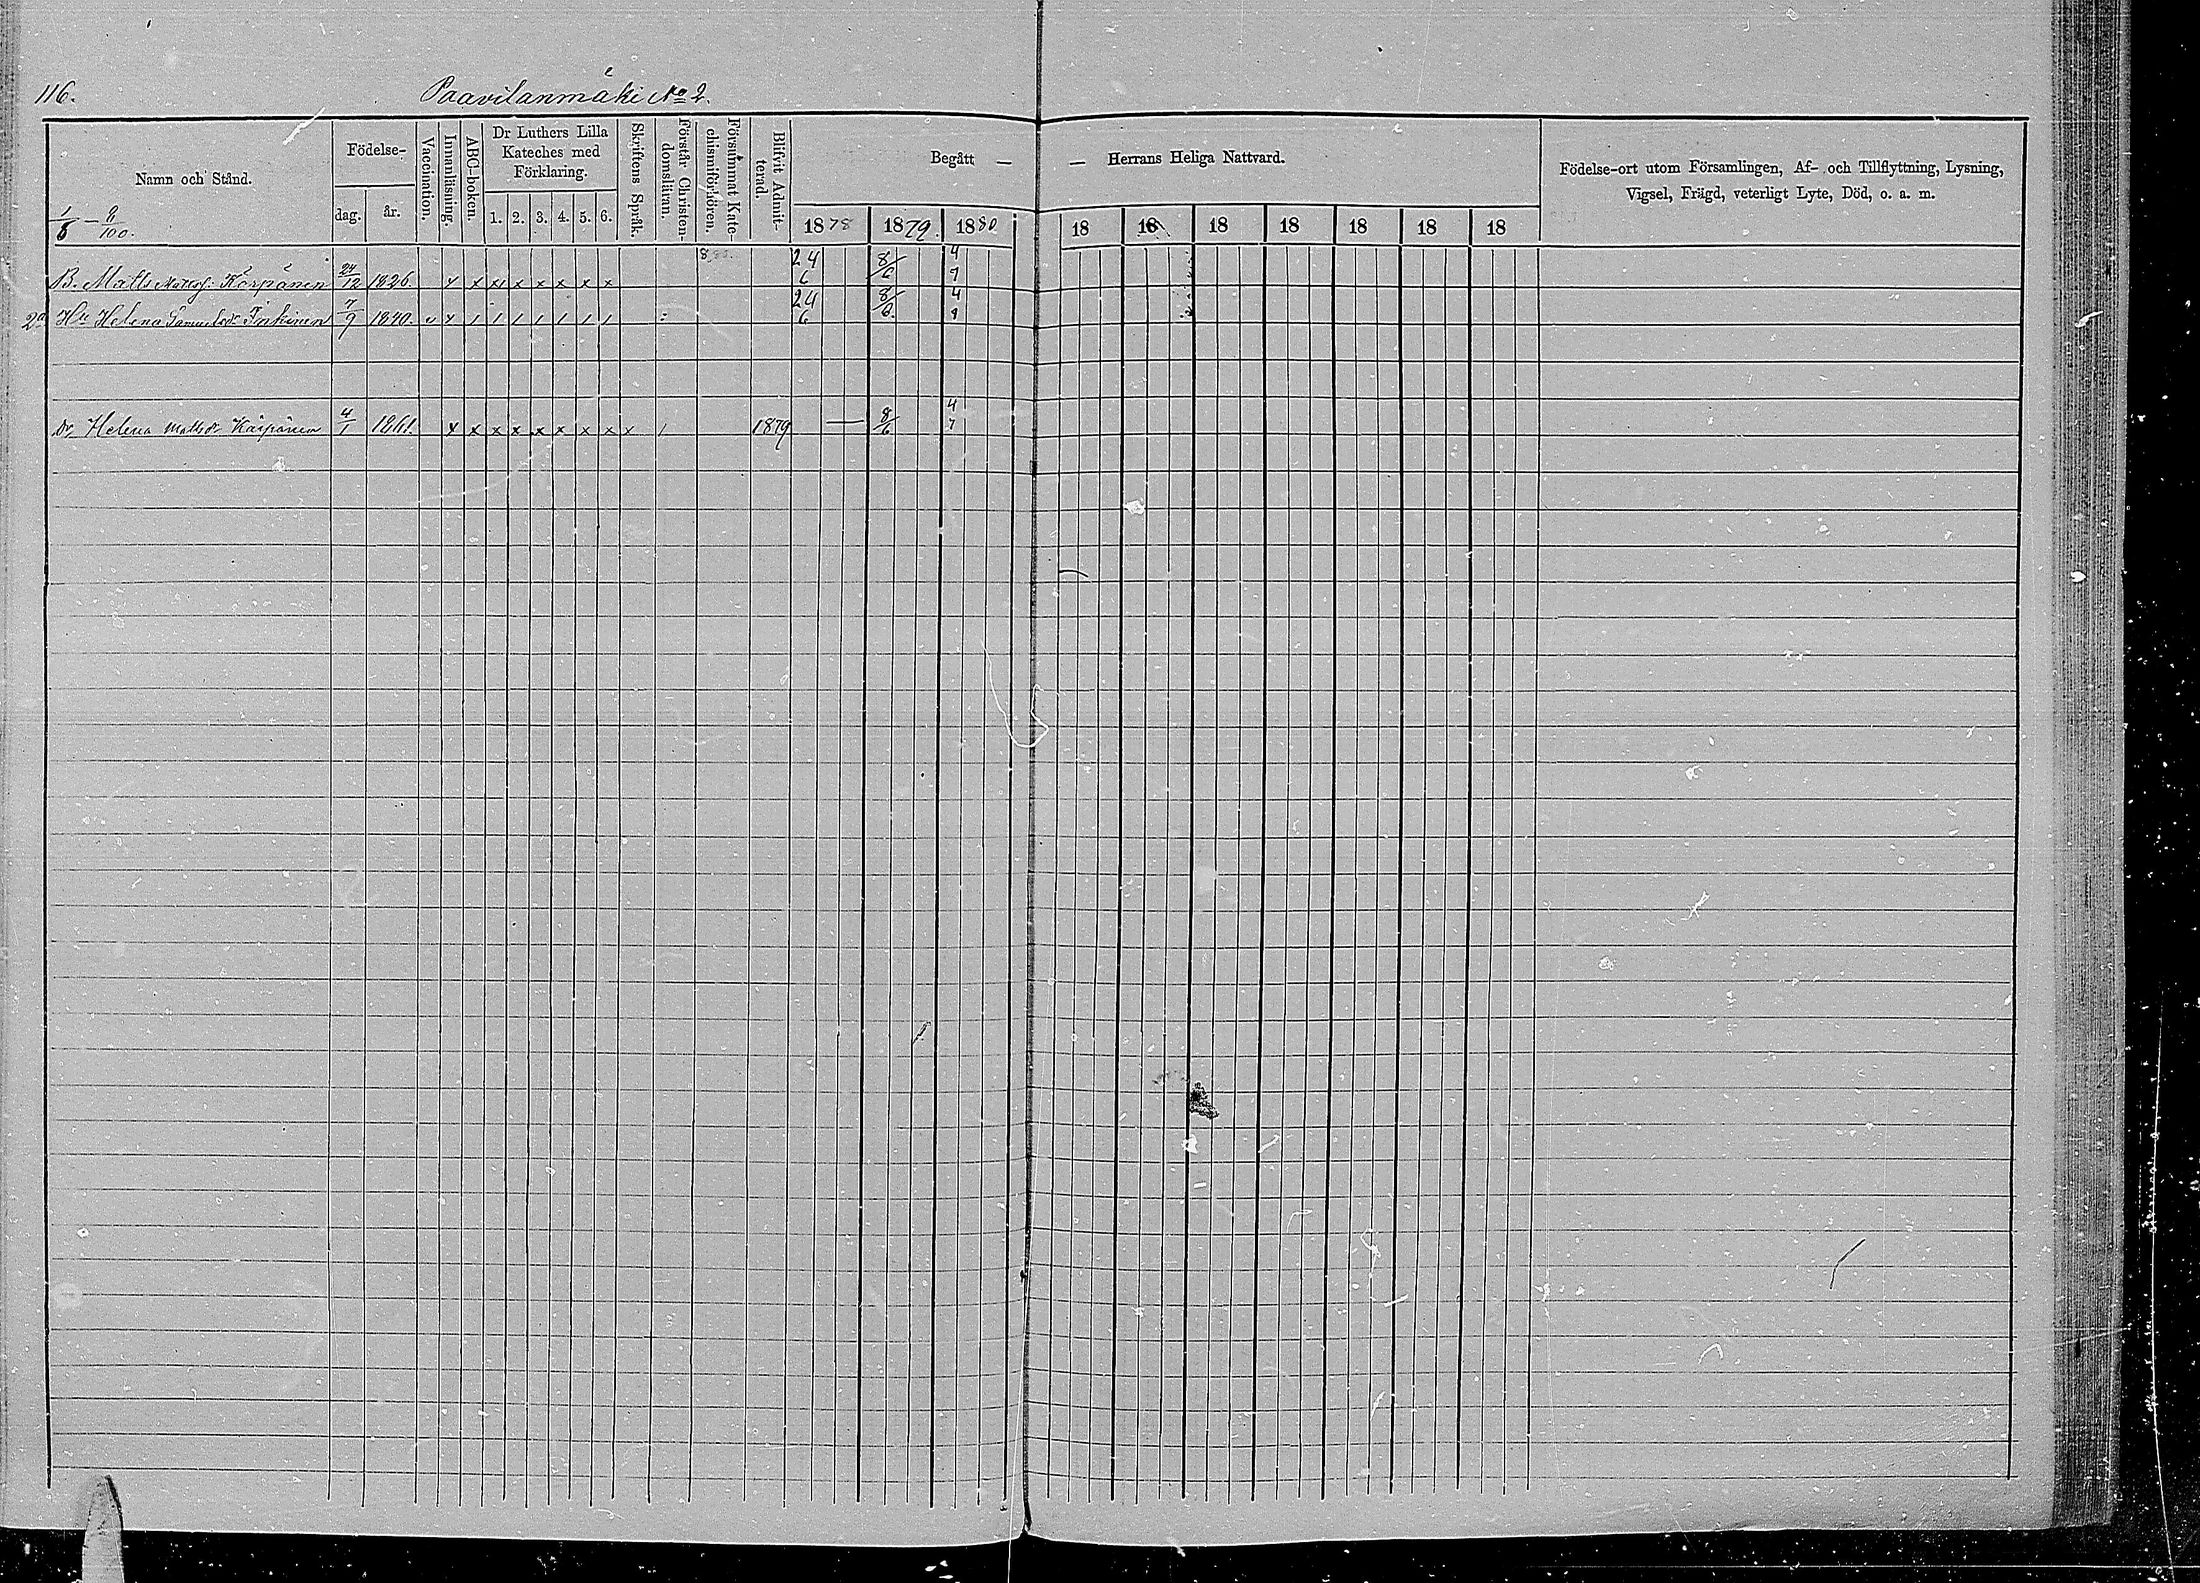 116. Paavilanmäki No 2.
Namn och Stånd.
1/6 — 8/100.
Födelse-
dag. år.
Vaccination.
Innanläsning.
ABC-boken.
Dr Luthers Lilla
Kateches med
Förklaring.
1. 2. 3. 4. 5. 6.
Skriftens Språk.
Förstår Christen-
domsläran.
Försummat Kate-
chismiförhören.
Blifvit Admit-
terad.
Begått — — Herrans Heliga Nattvard.
1878 1879. 1880 18 18 18 18 18 18 18
Födelse-ort utom Församlingen, Af- och Tillflyttning, Lysning,
Vigsel, Frägd, veterligt Lyte, Död, o. a. m.
B. Matts Körpänen 24/12 1826. x x x x x x x x 24/6 8/6 4/7
2a Hu Helena Samuelsdr 7/9 1840. 24/6 8/6.
dr Helena Mattsdr 4/1 1861. x x x x x x x x x 1879 — 8/6 4/7